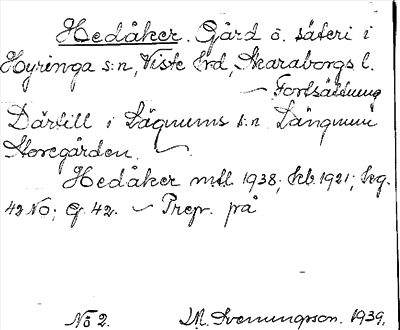 Hedåker. Gård o. säteri i
Hyringa s:n, Viste hrd, Skaraborgs l.
— Fortsättning
Därtill i Längnums s:n Längnum
Storegården. —
Hedåker mtl. 1938; Jeb. 1921; Jeg.
42 NO; G. 42. — Prep. på
No 2. M. Svenungsson. 1939.